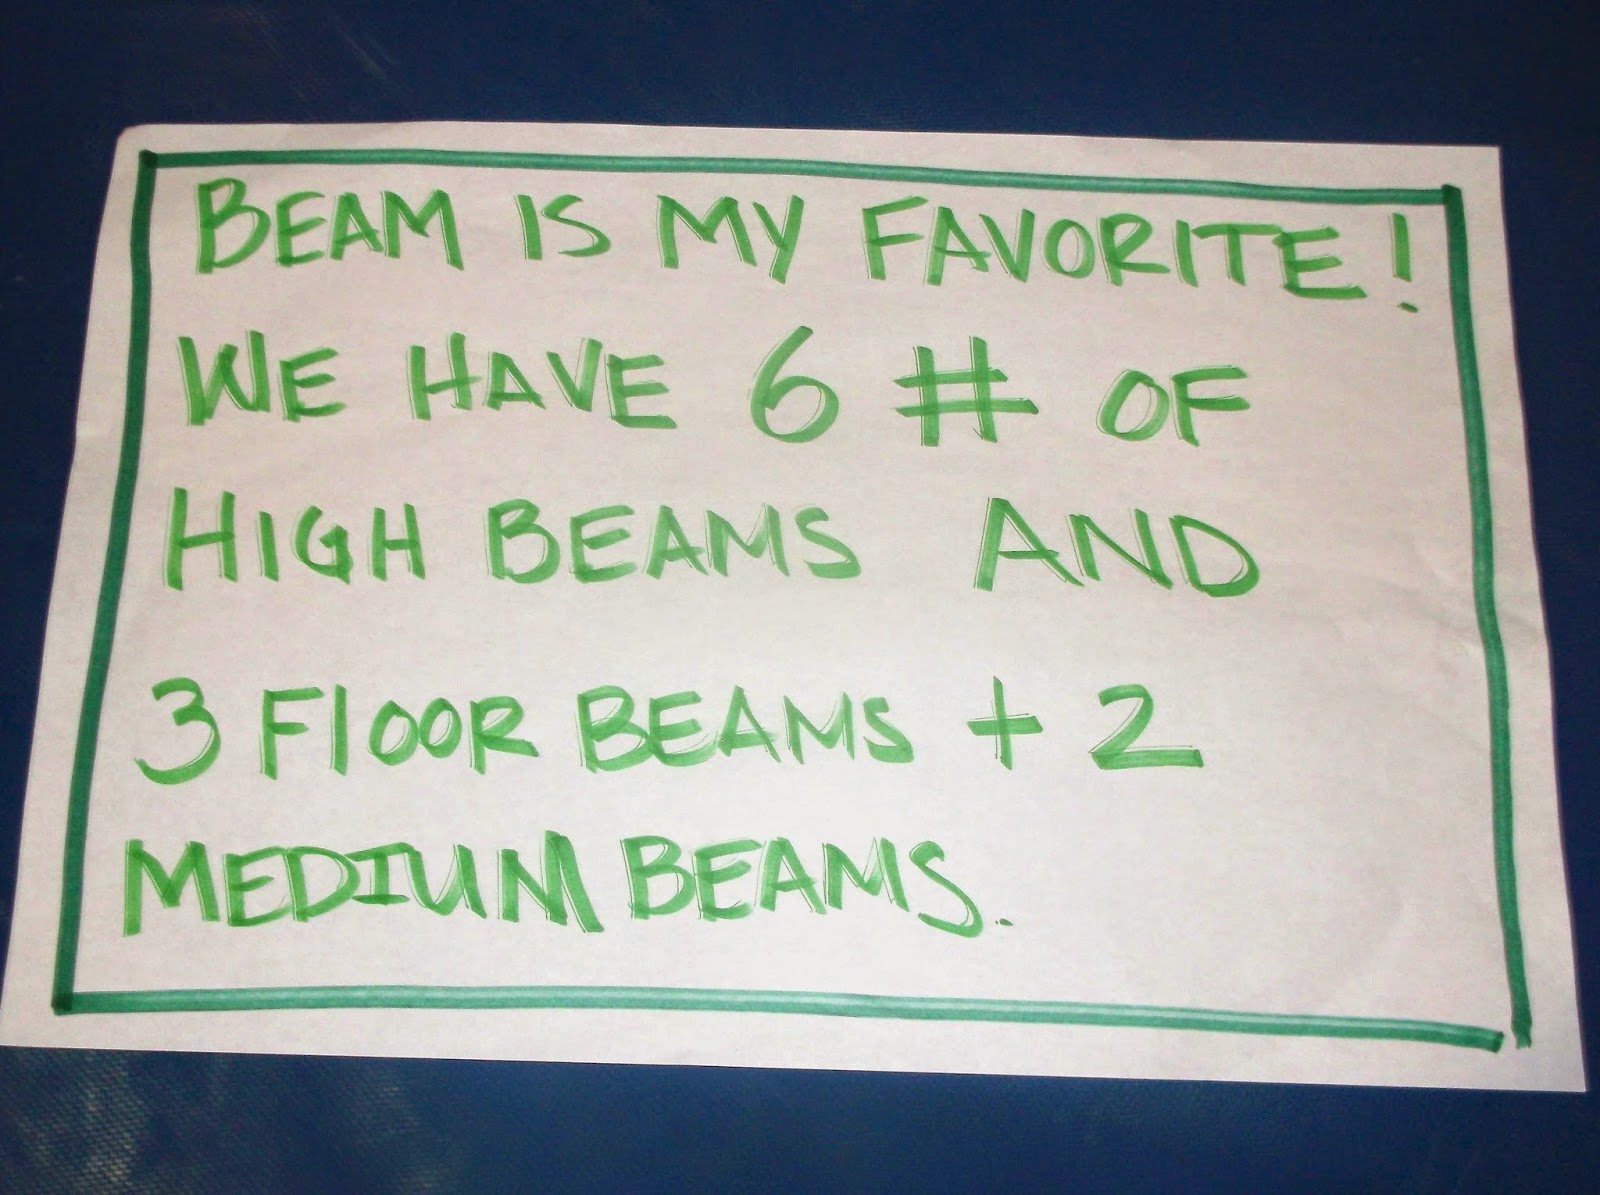 BEAM IS MY FAVORITE!
WE HAVE 6 # OF
HIGH BEAMS AND
3 FlOOR BEAMS + 2
MEDIUM BEAMS.